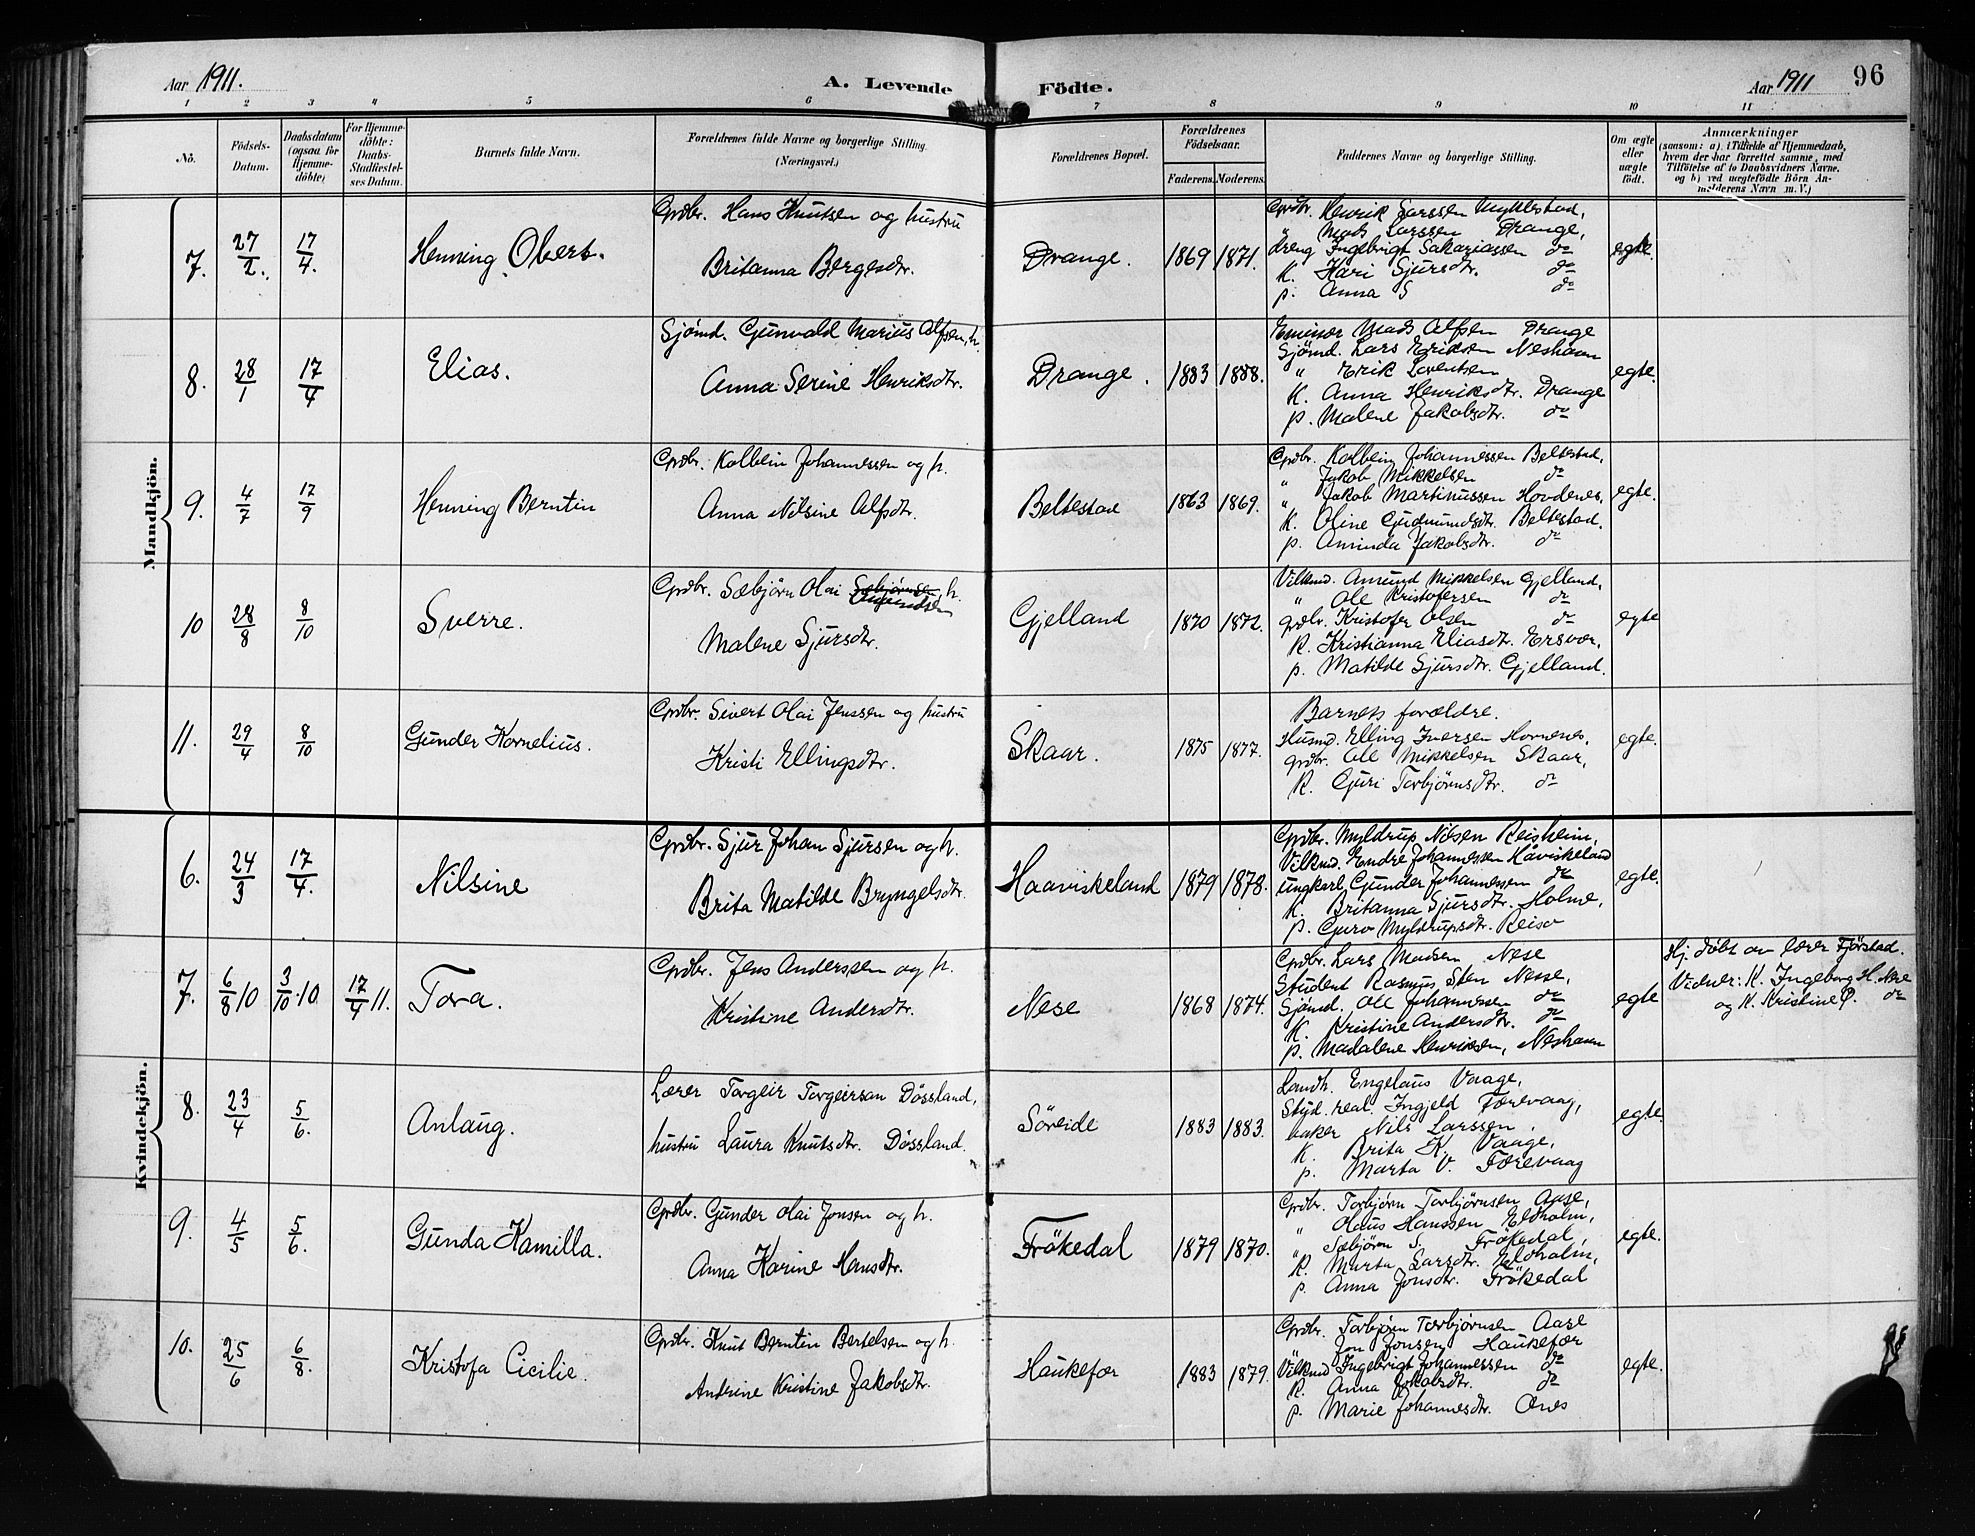 Aar 1911. A. Levende Födte. Aar 1911 96
1 2 3 4 5 6 7 8 9 10 11
Nö.
Födsels-Datum.
Daabsdatum (ogsaa for Hjemme-döbte)
For Hjemme-döbte: Daabs-Stadfæstel-ses Datum.
Barnets fulde Navn.
Forældrenes fulde Navne og borgerlige Stilling. (Næringsvei.)
Forældrenes Bopæl.
Forældrenes Födselsaar.
Faderens. Moderens.
Faddernes Navne og borgerlige Stilling.
Om ægte eller uægte födt.
Anmærkninger
(saasom: a) i Tilfælde af Hjemmedaab,
hvem der har forrettet samme, med
Tilföielse af to Daabsvidners Navne.
og b) ved uægtefödte Börn An-
melderens Navn m. V.)
Mandkjön.
7. 27/2. 17/4. Henning Obert.
Grdbr. Hans Knutsen og hustru
Britanna Bergesdtr.
Drange. 1869 1871.
Grdbr. Henrik Larssen Myklestad,
" Mads Larssen Drange,
dreng Ingebrigt Sakariassen do
K. Kari Sjursdtr. do
p. Anna S do
egte.
8. 28/1 17/4 Elias.
Sjömd. Gunvald Marius Alfsen, h.
Anna Serine Henriksdtr.
Drange. 1883 1888.
Mads Alfsen Drange
Sjömd. Lars Eriksen Neshavn
" Erik Loventsen
K. Anna Henriksdtr. Drange
p. Malene Jakobsdtr. do
egte.
9. 4/7 17/9 Henning Berntin
Grdbr. Kolbein Johannessen og h.
Anna Nilsine Alfsdtr.
Beltestad 1863 1869.
Grdbr. Kolbein Johannessen Beltestad,
" Jakob Mikkelsen do
" Jakob Martinussen Hovdenes,
K. Oline Gudmundsdtr. Beltestad.
p. Aminda Jakobsdtr. do
egte.
10 28/8 8/10 Sverre.
Grdbr. Sæbjörn Olai Sæbjörnsen, h.
Amundsen
Malene Sjursdtr.
Gjelland 1870 1872.
Vilkmd. Amund Mikkelsen Gjelland,
" Ole Kristofersen do
grdbr. Kristofer Olsen do
K. Kristianna Eliasdtr. Ersvær,
p. Matilde Sjursdtr. Gjelland.
egte
11. 29/4 8/10 Gunder Kornelius.
Grdbr. Sivert Olai Jenssen og hustru
Kristi Ellingsdtr.
Skaar. 1875 1877.
Barnets forældre.
Husmd. Elling Iversen Hovnenes,
grdbr. Ole Mikkelsen Skaar,
K. Guri Torbjörnsdtr. do
egte.
Kvindekjön.
6. 24/3 17/4. Nilsine
Grdbr. Sjur Johan Sjursen og h.
Brita Matilde Bryngelsdtr.
Haaviskeland 1879 1878.
Grdbr. Myldrup Nilsen Reisheim,
Vilkmd. Endre Johannessen Håviskeland
ungkarl Gunder Johannessen do
K. Britanna Sjursdtr. Holme,
p. Guro Myldrupsdtr. Reisø
egte.
7. 6/8 10 3/10.10 17/4 11. Tora.
Grdbr. Jens Anderssen og h.
Kristine Andersdtr.
Nese 1868 1874.
Grdbr. Lars Madsen Nese
Student Rasmus Sten Nesse,
Sjömd. Ole Johannessen do
K. Kristine Andersdtr. do
p. Madalene Henriksen, Neshavn
egte
Hj. döbt av lærer Fjørstad.
Vidner: K. Ingeborg H. Nese
og K. Kristine P. do
8. 23/4 5/6. Anlaug.
Lærer Torgeir Torgeirson Døssland,
hustru Laura Knutsdtr. Døssland.
Söreide 1883 1883.
Landh. Engelaus Vaage,
Stud. real. Ingjeld Færevaag,
baker Nils Larssen.
K. Brita K. Vaage,
p. Marta V. Færevaag
egte.
9. 4/5 5/6. Gunda Kamilla.
Grdbr. Gunder Olai Jonsen og h.
Anna Karine Hansdtr.
Frökedal 1879 1870.
Grdbr. Torbjörn Torbjörnsen Aase,
" Olaus Hanssen Eldholm,
" Sæbjörn S. Frökedal,
K. Marta Larsdtr. Eldholm,
p. Anna Jonsdtr. Frökedal
egte.
10. 25/6 6/8. Kristofa Cicilie.
Grdbr. Knut Berntin Bertelsen og h.
Andrine Kristine Jakobsdtr.
Haukefær 1883 1879.
Grdbr. Torbjörn Torbjörnsen Aase
Jon Jonsen Haukefær
Vilkmd Ingebrigt Johannessen do
K. Anna Jakobsdtr. do
p. Marie Johannesdtr. Ønes
egte.